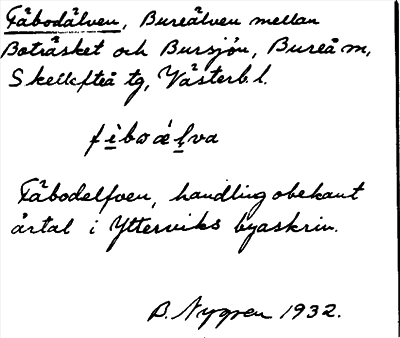 Fäbodälven, Bureälven mellan
Boträsket och Bursjön, Bureå m,
Skellefteå tg, Västerb. l.
fìboǽḷva
Fäbodelfven, handling obekant
årtal i Ytterviks byaskrin.
B. Nygren 1932.